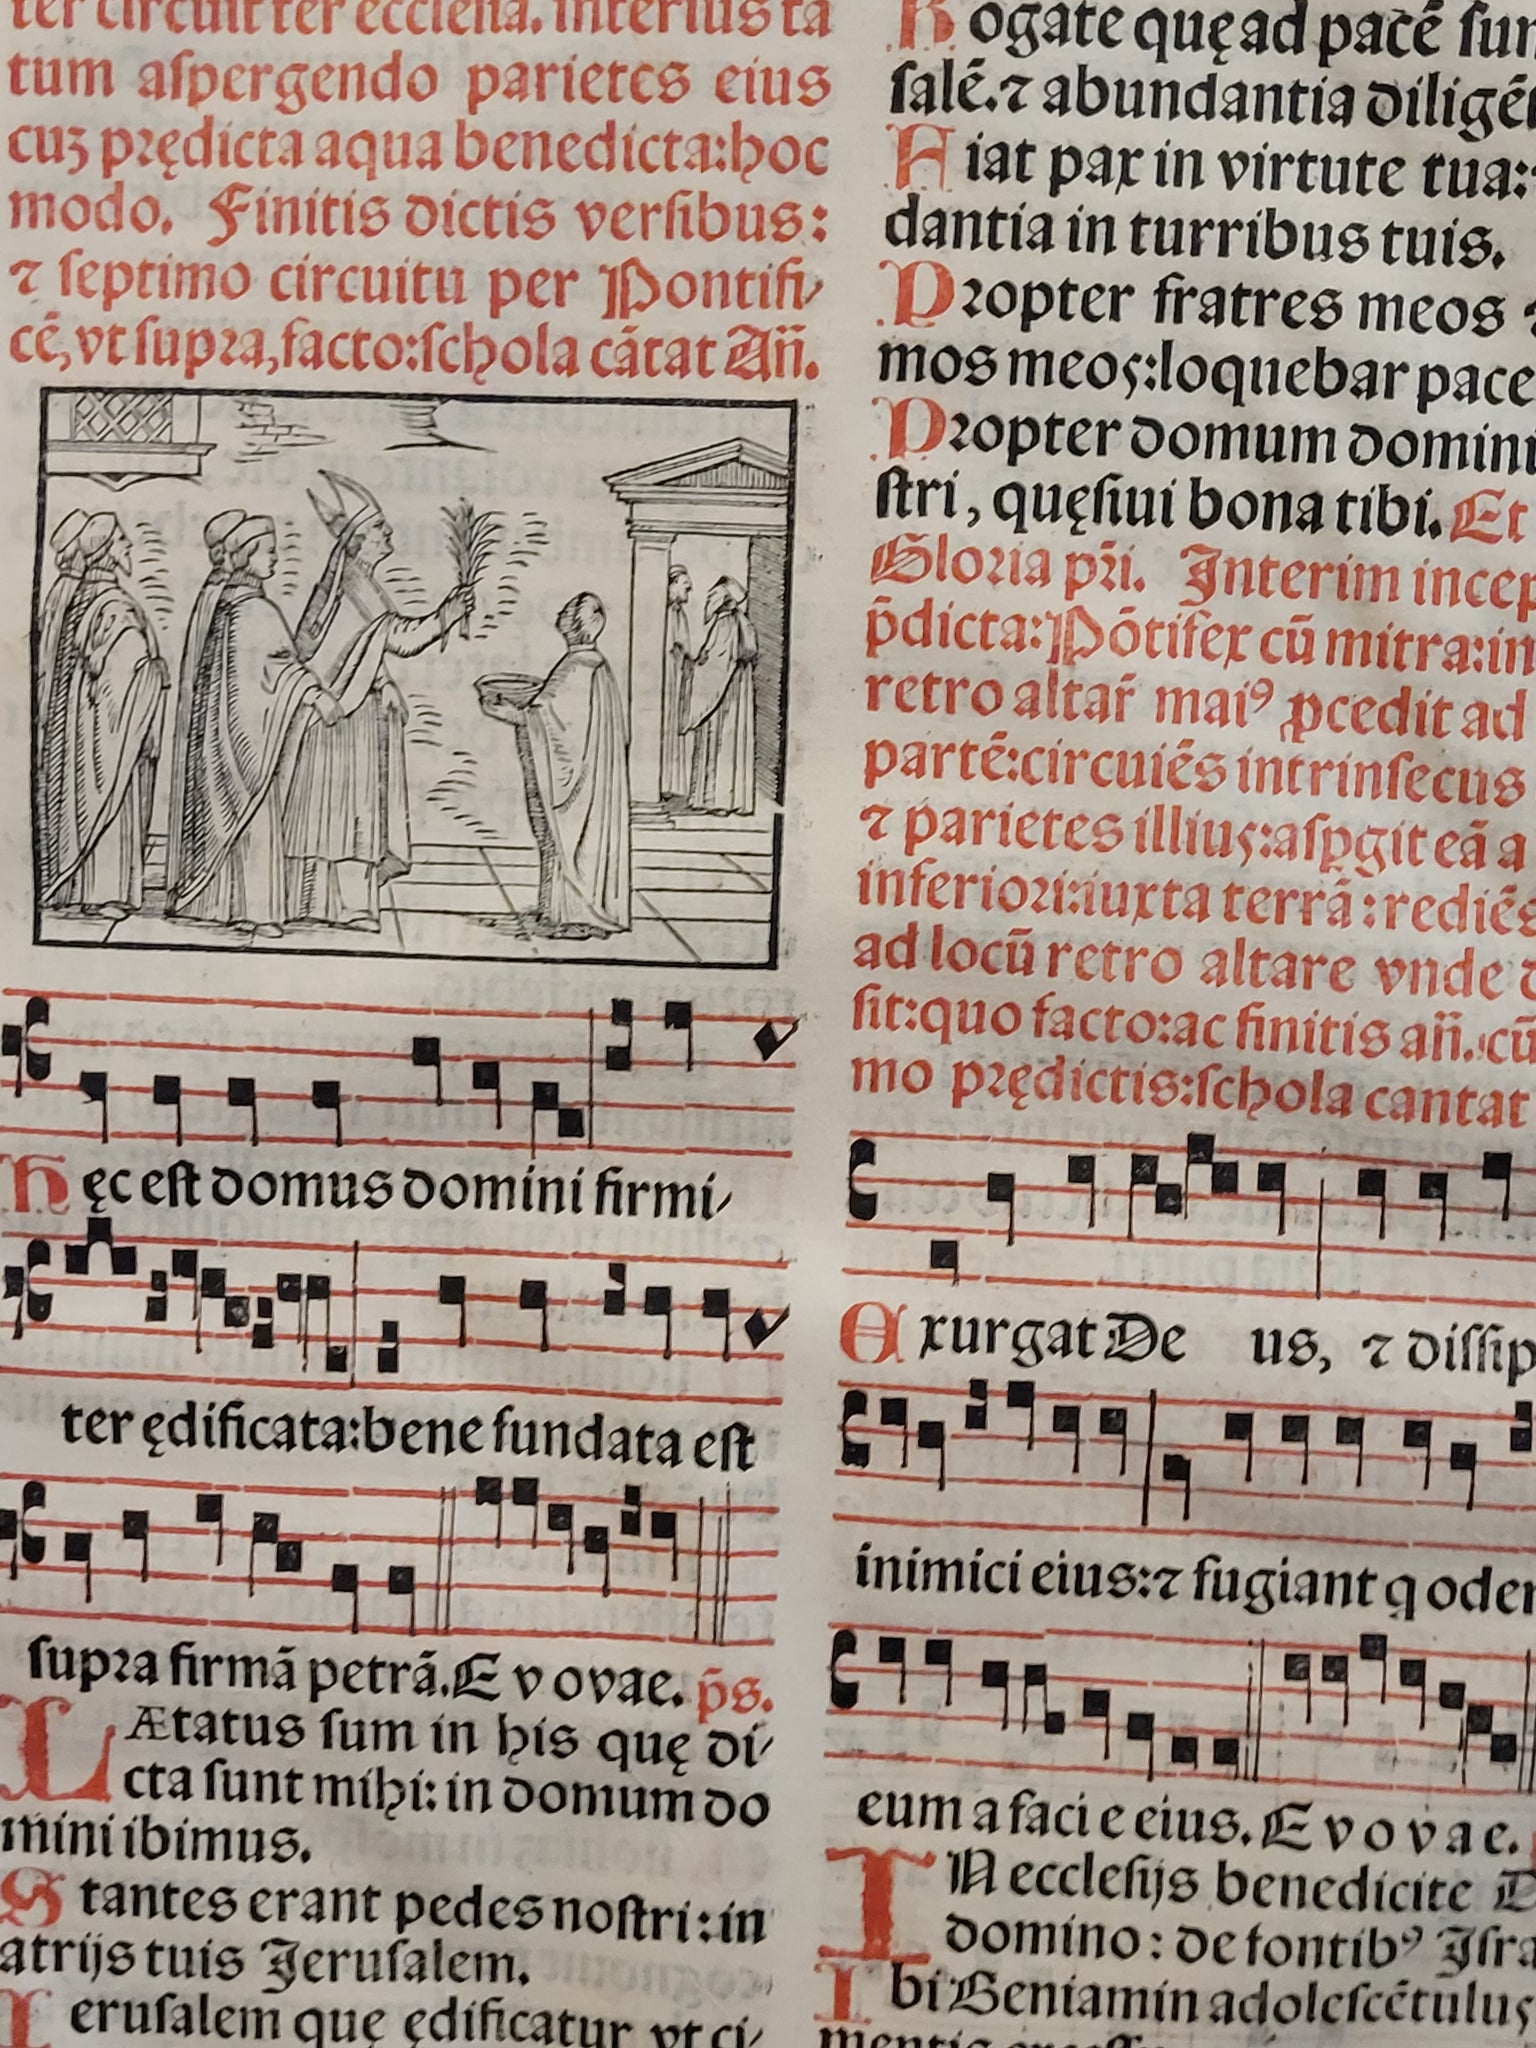 ter circuit ter ecclesia. interius ta
tum aſpergendo parietes eius
cuʒ pꝛędicta aqua benedicta:hoc
modo. Finitis dictis verſibus:
⁊ ſeptimo circuitu per Pontifi⸗
cē,vt ſupꝛa,facto:ſchola cātat Añ.
Hęc eſt domus domini firmi⸗
ter ędificata:bene fundata eſt
ſupꝛa firmā petrā.E v ovae. p̄s.
LÆtatus ſum in his quę di⸗
cta ſunt mihi: in domum do
mini ibimus.
Stantes erant pedes noſtri: in
atrijs tuis Jeruſalem.
Ieruſalem quę ędificatur vt ci⸗
Rogate quę ad pacē ſun
ſalē.⁊ abundantia diligē
Fiat pax in virtute tua:
dantia in turribus tuis.
Pꝛopter fratres meos
mos meoς:loquebar pace
Pꝛopter domum domini
ſtri, quęſiui bona tibi. Et
Gloꝛia pr̄i. Interim incep
p̄dicta:Pōtifex cū mitra:in
retro altar̄ maiꝰ ꝓcedit ad
partē:circuiēs intrinſecus
⁊ parietes illiuς:aſꝑgit eā a
inferioꝛi:iuxta terrā: rediēs
ad locū retro altare vnde
ſit:quo facto:ac finitis añ. cū
mo pꝛędictis:ſchola cantat
Exurgat De us, ⁊ diſſip
inimici eius:⁊ fugiant q oder
eum a faci e eius. E v o v a e.
IN eccleſijs benedicite D
domino: de fontibꝰ Iſra
Ibi Beniamin adoleſcētuluς
mentis